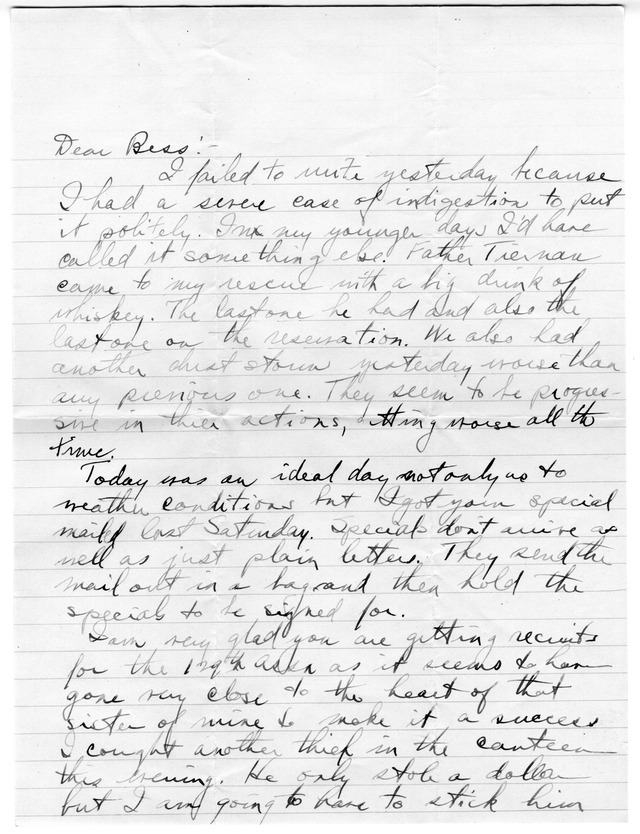 Dear Bess:-
I failed to write yesterday because
I had a severe case of indigestion to put
it politely. In my younger days I'd have
called it something else. Father Tiernan
came to my rescue with a big drink of
whiskey. The last one he had and also the
last one on the reservation. We also had
another dust storm yesterday worse than
any previous one. They seem to be progres-
sive in thier actions, getting worse all the
time.
Today was an ideal day not only as to
weather conditions but I got your special
mailed last Saturday. Specials dont arrive as
well as just plain letters. They send the
mail out in a bag and then hold the
specials to be signed for.
I am very glad you are getting recruits
for the 129th Assn as it seems to have
gone very close to the heart of that
sister of mine to make it a success
I caught another thief in the canteen
this evening. He only stole a dollar
but I am going to have to stick him